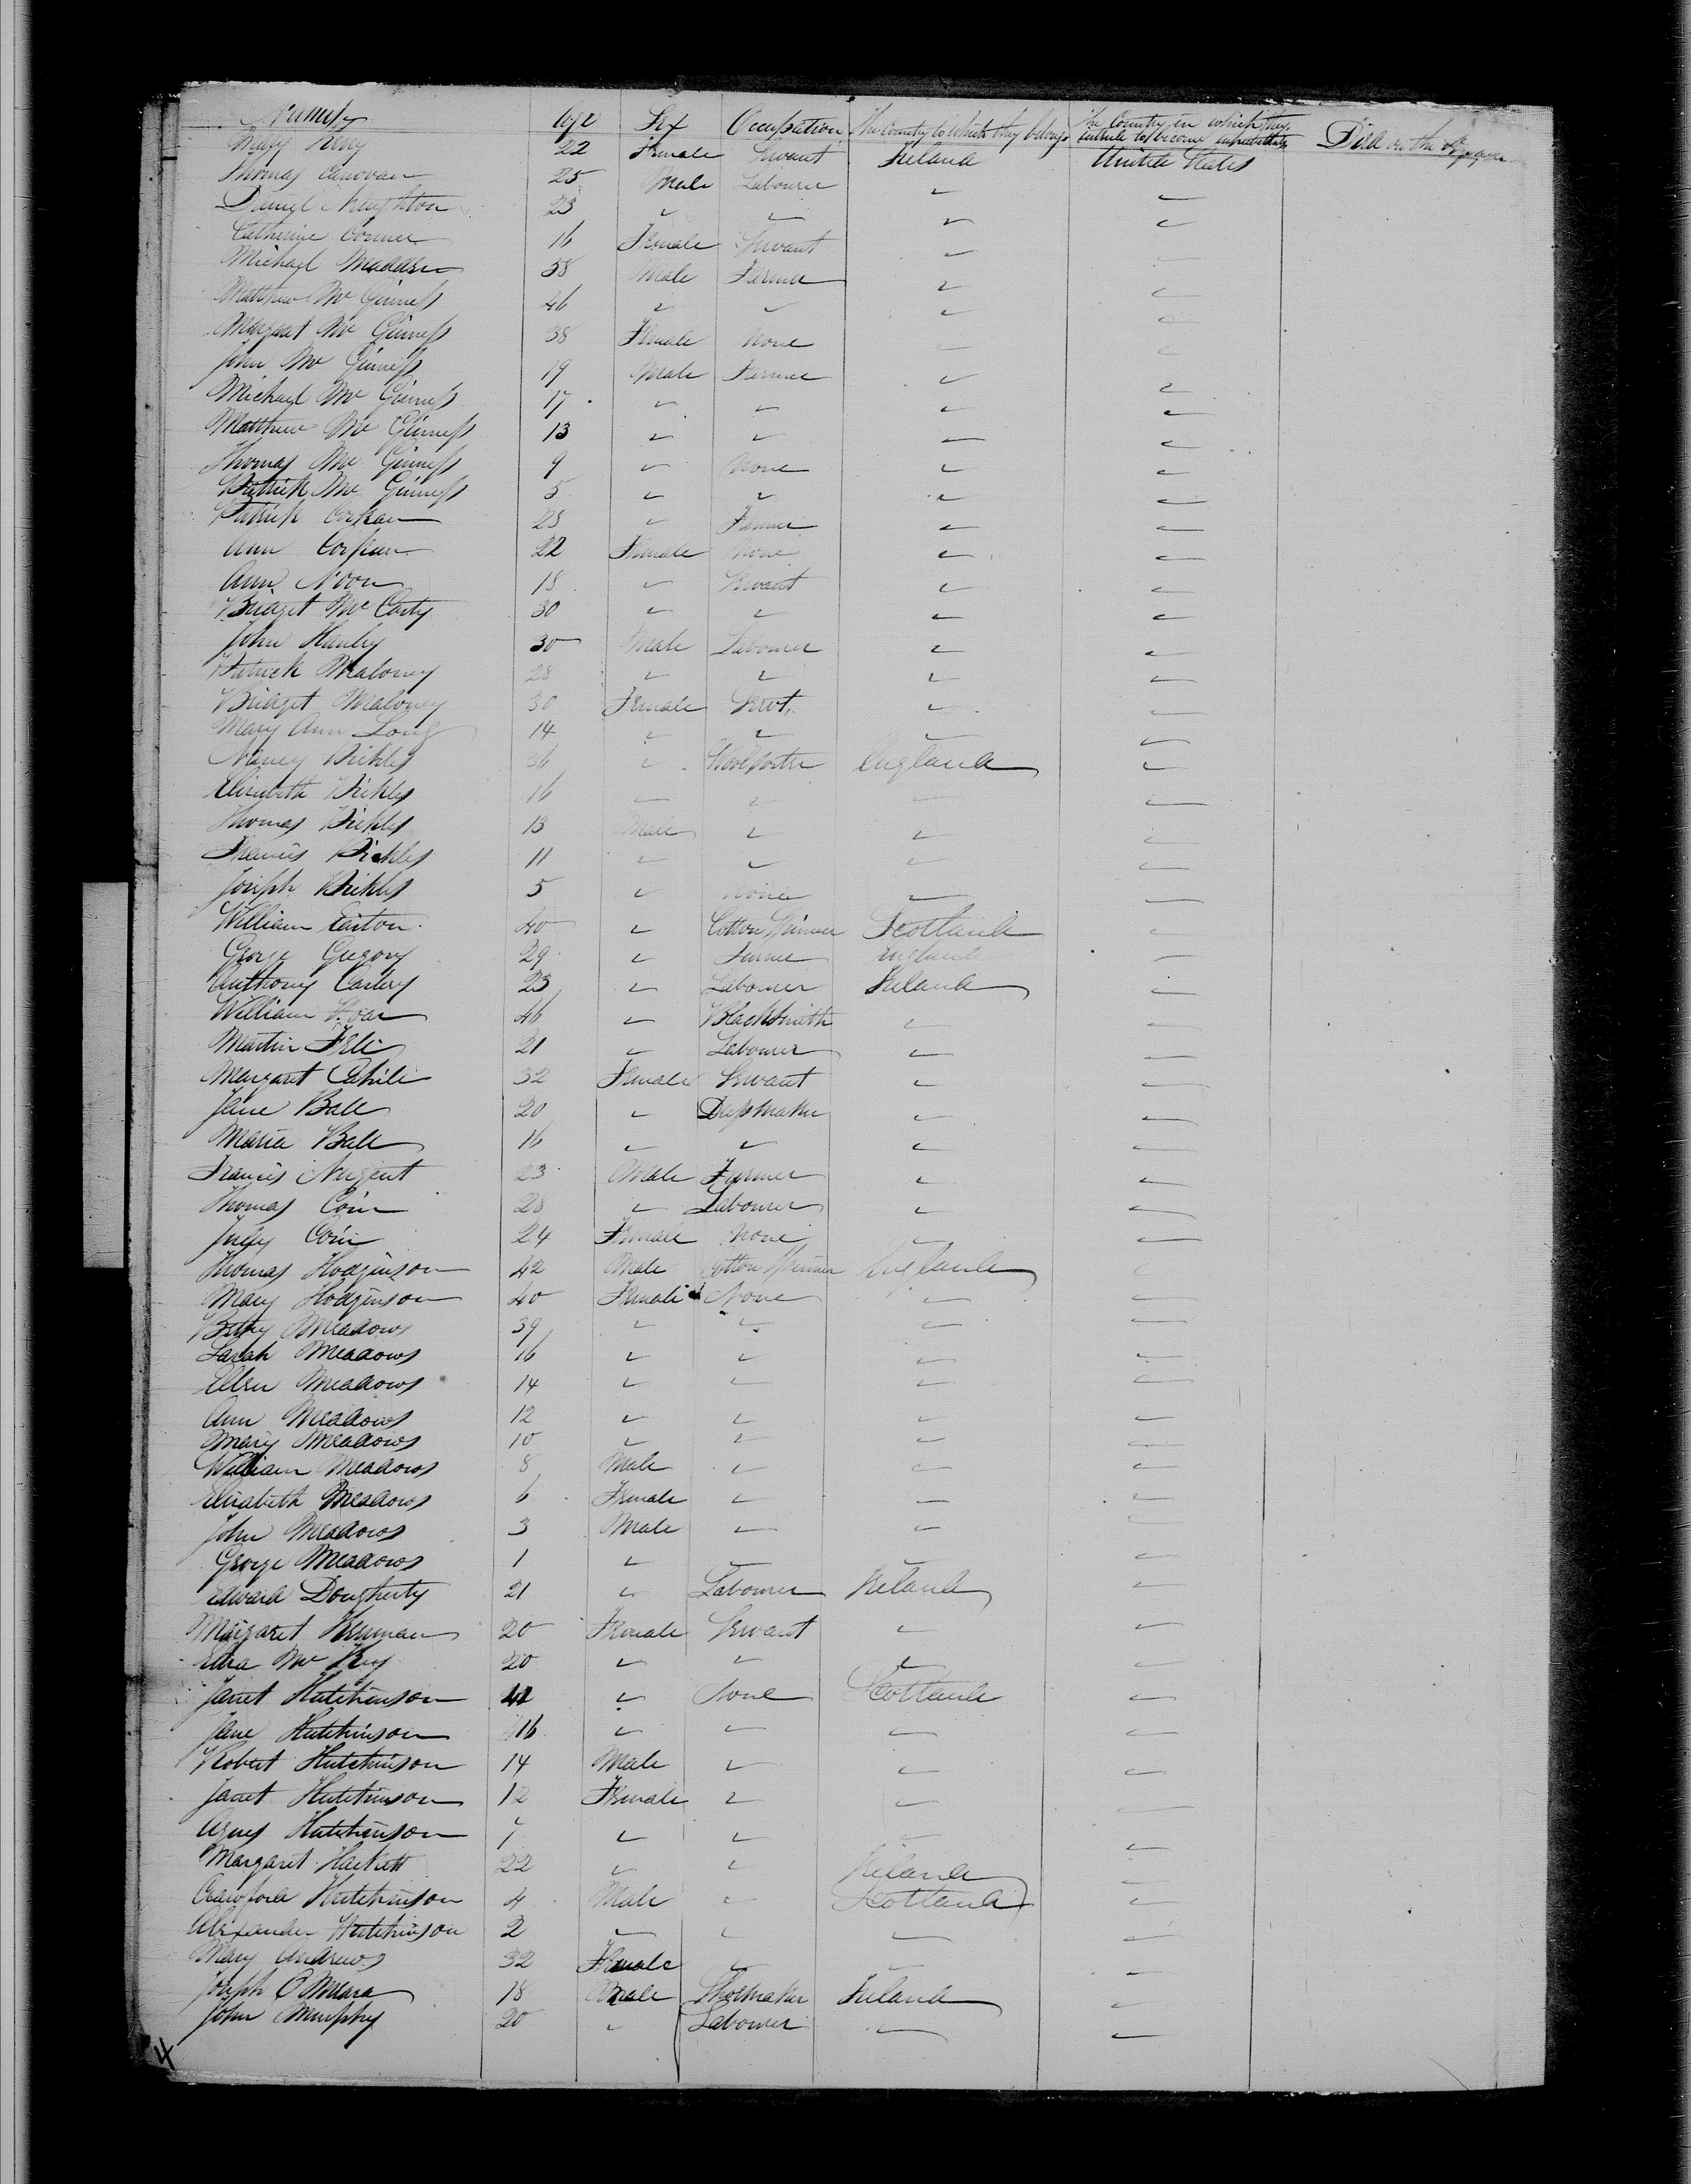 Names Age Sex Occupation The Country to which they belong The Country in which they intend to become inhabitants Died on the Voyage
Mary 22 Female Servant Ireland United States
Thomas Canovan 25 Male Labourer " "
Daniel Naughton 23 " " " "
Catherine 16 Female Servant " "
Michael Madden 58 Male Farmer " "
Matthew Mc Ginness 46 " " " "
Margaret Mc Ginness 38 Female None " "
John Mc Ginness 19 Male Farmer " "
Michael Mc Ginness 17 " " " "
Matthew Mc Ginness 13 " " " "
Thomas Mc Ginness 9 " None " "
Patrick Mc Ginness 5 " " " "
Patrick Corkan 25 " Farmer " "
Ann Corkan 22 Female None " "
Ann Noon 18 " Servant " "
Bridget Mc Carty 30 " " " "
John Hanley 30 Male Labourer " "
Patrick Maloney 28 " " " "
Bridget Maloney 30 Female Servt. " "
Mary Ann Long 14 " " " "
Nancy Pickles 36 " England "
Elizabeth Pickles 16 " " " "
Thomas Pickles 13 Male " " "
Francis Pickles 11 " " " "
Joseph Pickles 5 " None " "
William Easton 40 " Cotton Spinner Scotland "
George Gregory 29 " Farmer England "
Anthony 23 " Labourer Ireland "
William Hoar 46 " Blacksmith " "
Martin 21 " Labourer " "
Margaret Cahill 32 Female Servant " "
Jane Ball 20 " Dressmaker " "
Maria Ball 16 " " " "
Francis Nugent 23 Male Farmer " "
Thomas Coin 28 " Labourer " "
Judy Coin 24 Female None " "
Thomas Hodginson 42 Male Cotton Spinner England "
Mary Hodginson 40 Female None " "
Betty Meadows 39 " " " "
Sarah Meadows 16 " " " "
Ellen Meadows 14 " " " "
Ann Meadows 12 " " " "
Mary Meadows 10 " " " "
William Meadows 8 Male " " "
Elizabeth Meadows 6 Female " " "
John Meadows 3 Male " " "
George Meadows 1 " " " "
Edward Dougherty 21 " Labourer Ireland "
Margaret 20 Female Servant " "
Mc Key 20 " " " "
Janet Hutchinson 41 " None Scotland "
Jane Hutchinson 16 " " " "
Robert Hutchinson 14 Male " " "
Janet Hutchinson 12 Female " " "
Agnes Hutchinson 7 " " " "
Margaret Hackett 22 " " Ireland "
Crawford Hutchinson 4 Male " Scotland "
Alexander Hutchinson 2 " " " "
Mary Andrews 32 Female " " "
Joseph O'Meara 18 Male Shoemaker Ireland "
John Murphy 20 " Labourer " "
4